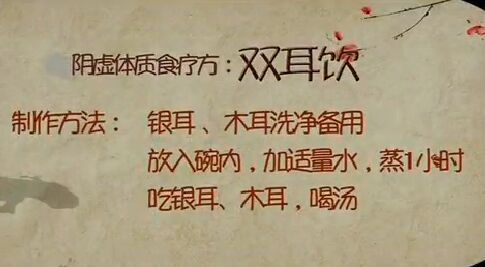 阴虚体质食疗方：双耳饮
制作方法： 银耳、木耳洗净备用
放入碗内，加适量水，蒸1小时
吃银耳、木耳，喝汤